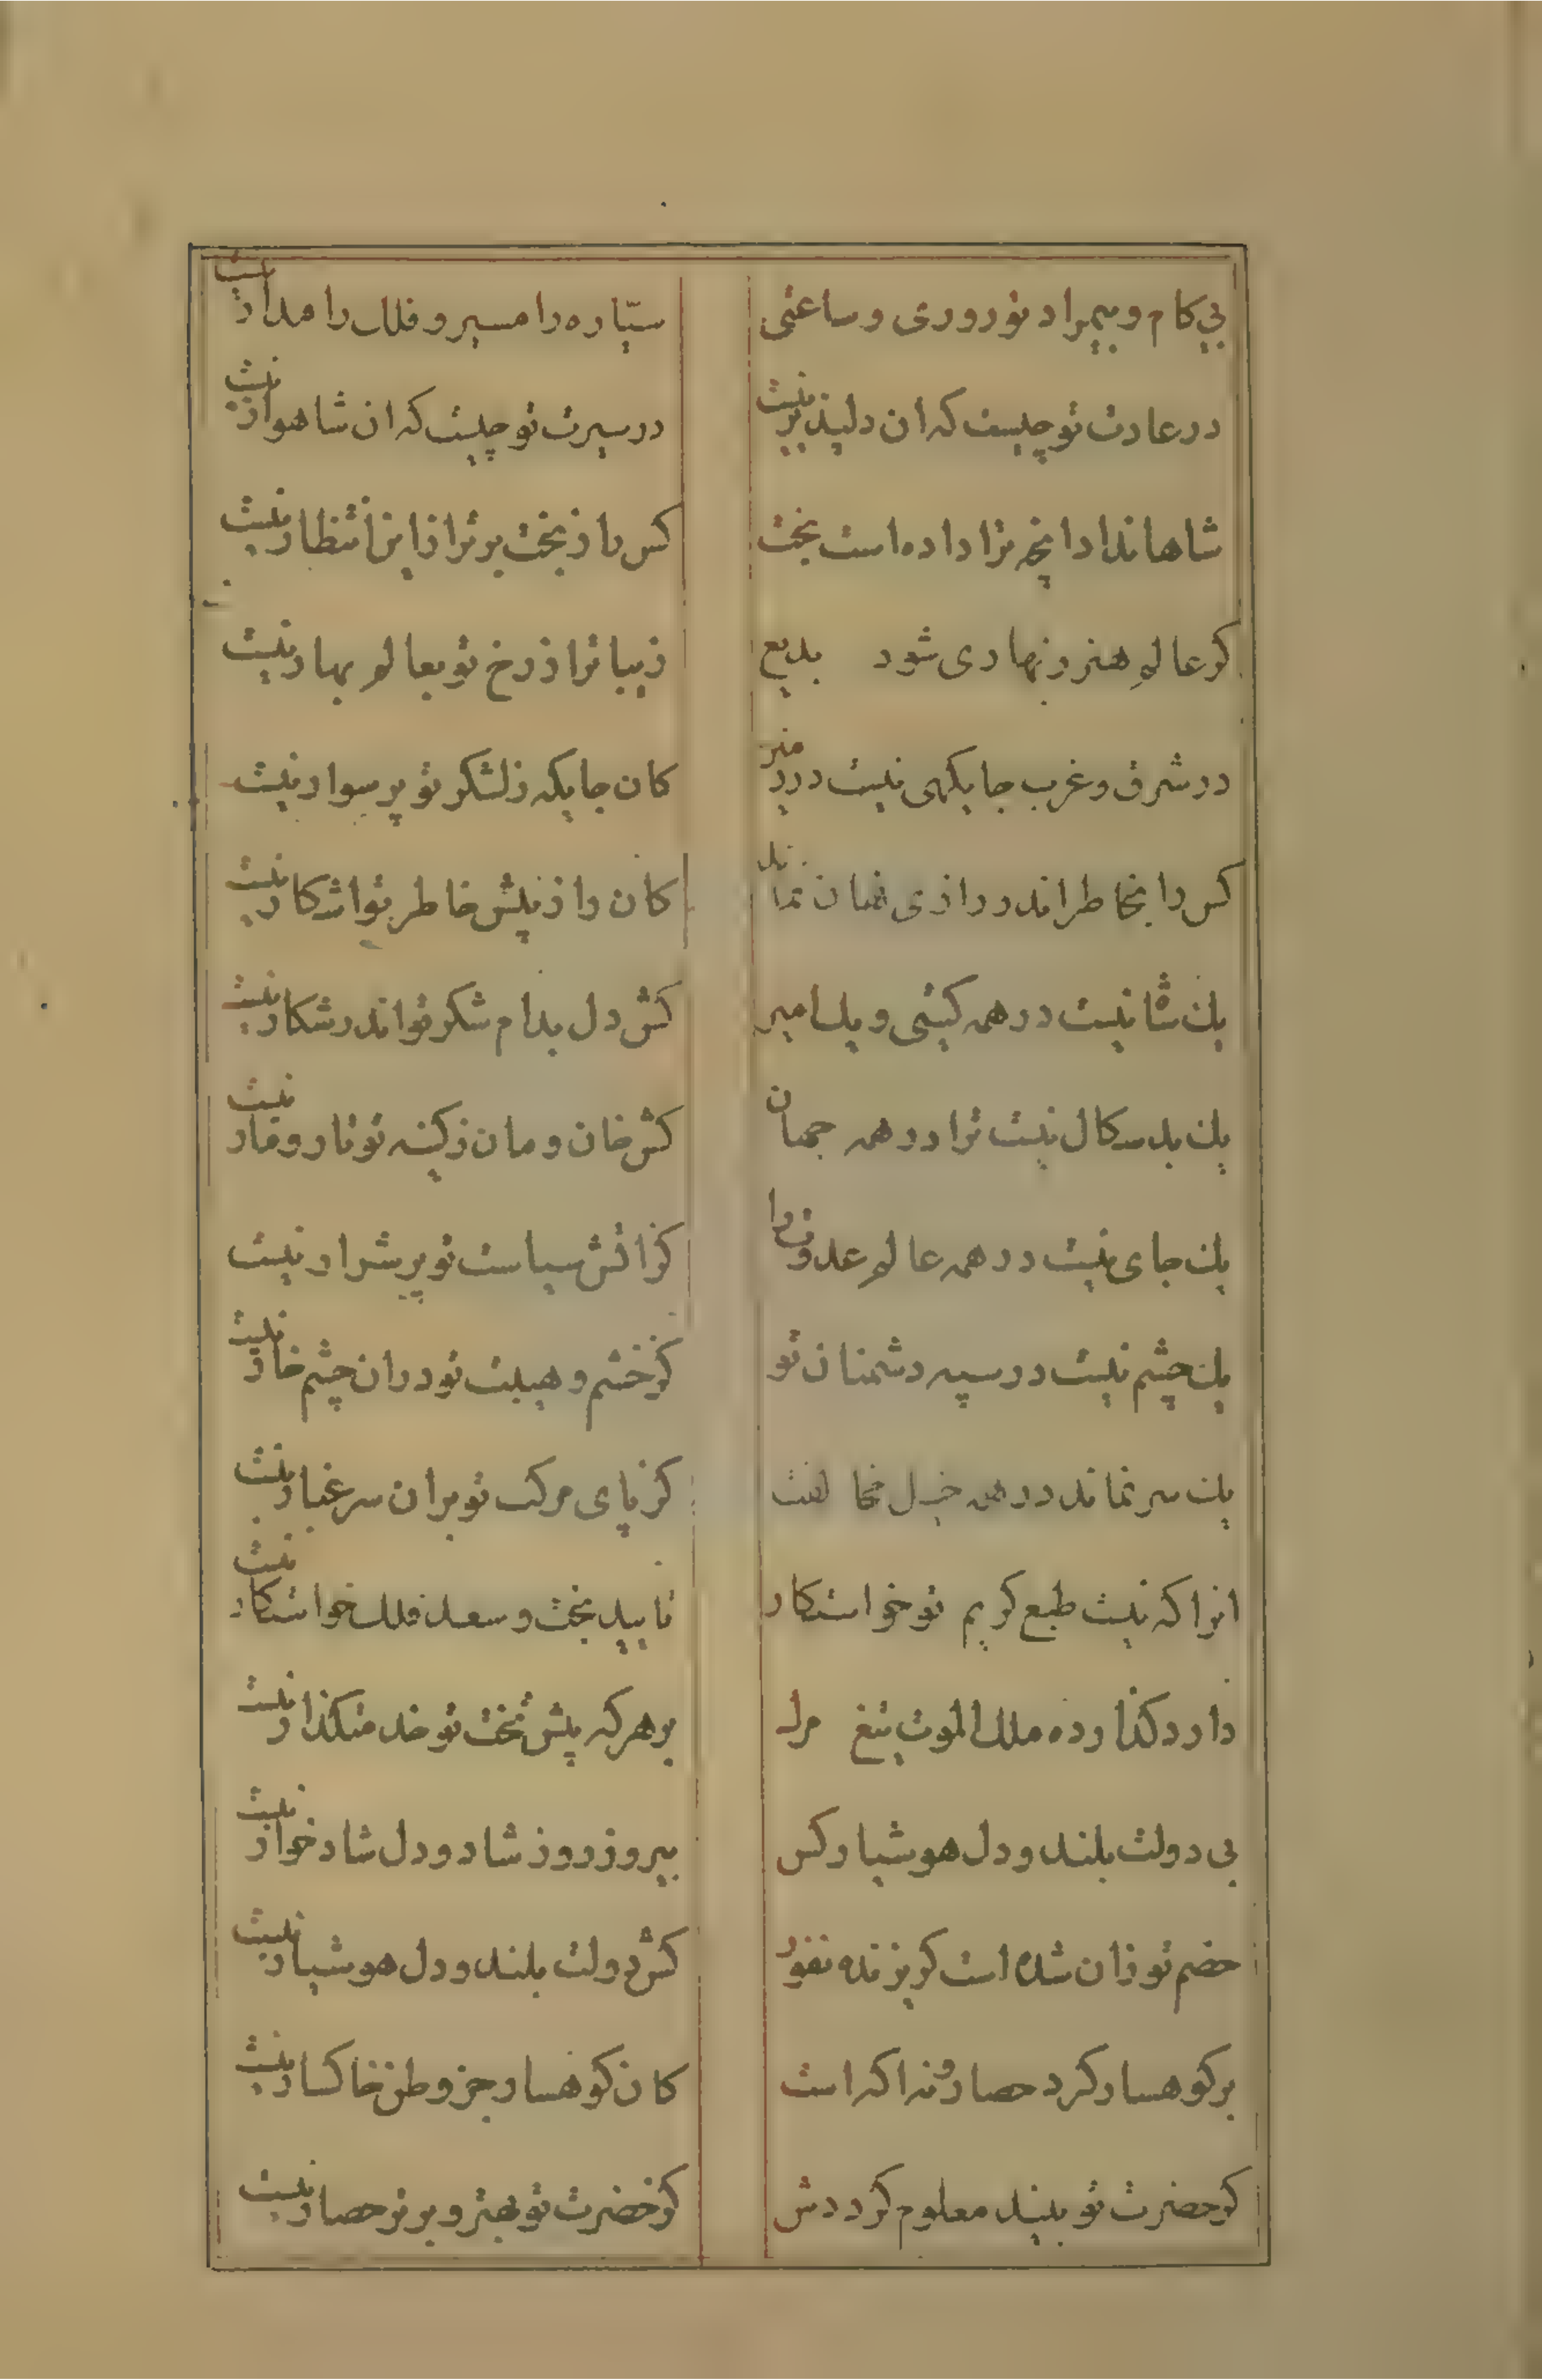 بی کام و بیمراد تو روزی و ساعتی سیّاره را مسیر و فلک را مدار نیست
در عادت تو چیست که ان دلپذیر نیست در سیرت تو چیست که ان شاهوار نیست
شاها خدا دانچه ترا داده است بخت کس را ز بخت برتر از این انتظار نیست
کر عالم هنر و نهاری شود بدیع زیباتر از رخ تو بعالم بهار نیست
در شرق و غرب جایکهی نیست در زمین کان جایکه ز لشکر تو پر سوار نیست
کس را بخاطر اندر رازی نهان نماند کان راز پیش خاطر تو اشکار نیست
یک شاه نیست در همه کیتی و یک امیر کش دل بدام شکر تو اندر شکار نیست
یک بدسکال نیست ترا در همه جهان کش خان و مان ز کینه تو تار و مار نیست
یک جای نیست در همه عالم عدوت را کز اتش سیاست تو پر شرار نیست
یک چشم نیست در سپه دشمنان تو کز خشم و هیبت تو در ان چشم خار نیست
یک سر نماند در همه خیل مخالفت کز پای مرکب تو بران سر غبار نیست
انرا که نیست طبع کریم تو خواستکار تایید بخت و سعد فلک خواستکار نیست
دارد کذار ده ملک الموت تیغ مرک بر هر که پیش تخت تو خدمتکذار نیست
بی دولت بلند و دل هوشیار کس پیروز روز شاد و دل شاد خوار نیست
خصم تو زان شده است کریزنده نفور کش دولت بلند و دل هوشیار نیست
بر کوهسار کرد حصار و نداکه است کان کوهسار جز وطن خاکسار نیست
کر حضرت تو بیند معلوم کرددش کز حضرت تو بهتر و برتر حصار نیست